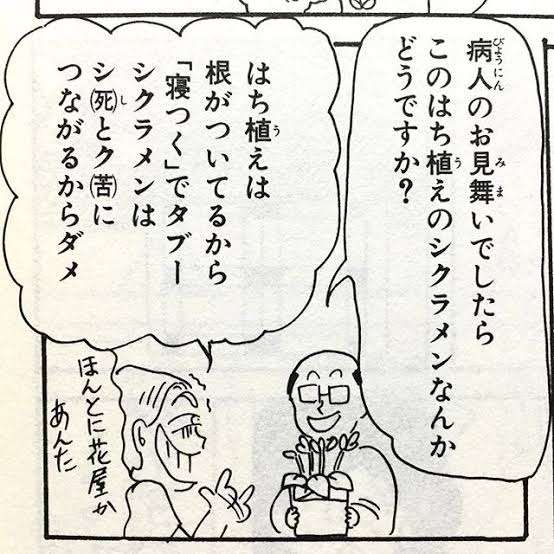 病人のお見舞いでしたら
このはち植えのシクラメンなんか
どうですか?
はち植えは
根がついてるから
「寝つく」でタブー
シクラメンは
シ(死)とク(苦)に
つながるからダメ
ほんとに花屋か
あんた